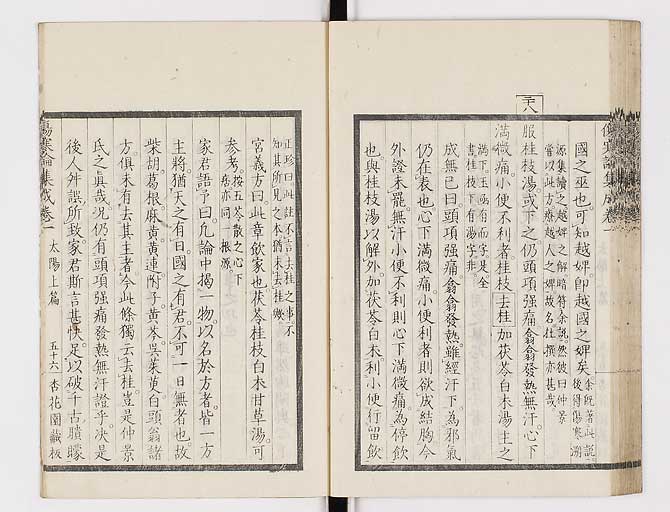 國之巫也可知越婢即越國之婢矣余既著此説後得傷寒溯
源集讀之越婢之解暗符余説然彼曰仲景
嘗以此方療越人之婢故名杜撰亦甚哉
二十八
服桂枝湯或下之仍頭項強痛翕翕發熱無汗心下
滿微痛小便不利者桂枝去桂加茯苓白朮湯主之
滿下玉函有而字是全
書桂枝下有湯字非
成無己曰頭項強痛翕翕發熱雖經汗下為邪氣
仍在表也心下滿微痛小便利者則欲成結胸今
外證未罷無汗小便不利則心下滿微痛為停飲
也與桂枝湯以解外加茯苓白朮利小便行留飲
傷寒論集成卷一
正珍曰此註不言去桂之事不
知其所見之本猶未去桂歟
宮義方曰此章飲家也茯苓桂枝白朮甘草湯可
參考按五苓散之心下
痞亦同一根源
家君語予曰凡論中揭一物以名於方者皆一方
主將猶天之有日國之有君不可一日無者也故
柴胡葛根麻黃黃連附子黃芩吳茱萸白頭翁諸
方俱未有去其主者今此條獨云去桂豈是仲景
氏之真哉況仍有頭項強痛發熱無汗證乎決是
後人舛誤所致家君斯言甚快足以破千古膭矇
傷寒論集成卷一 太陽上篇 五十六 杏花園藏板